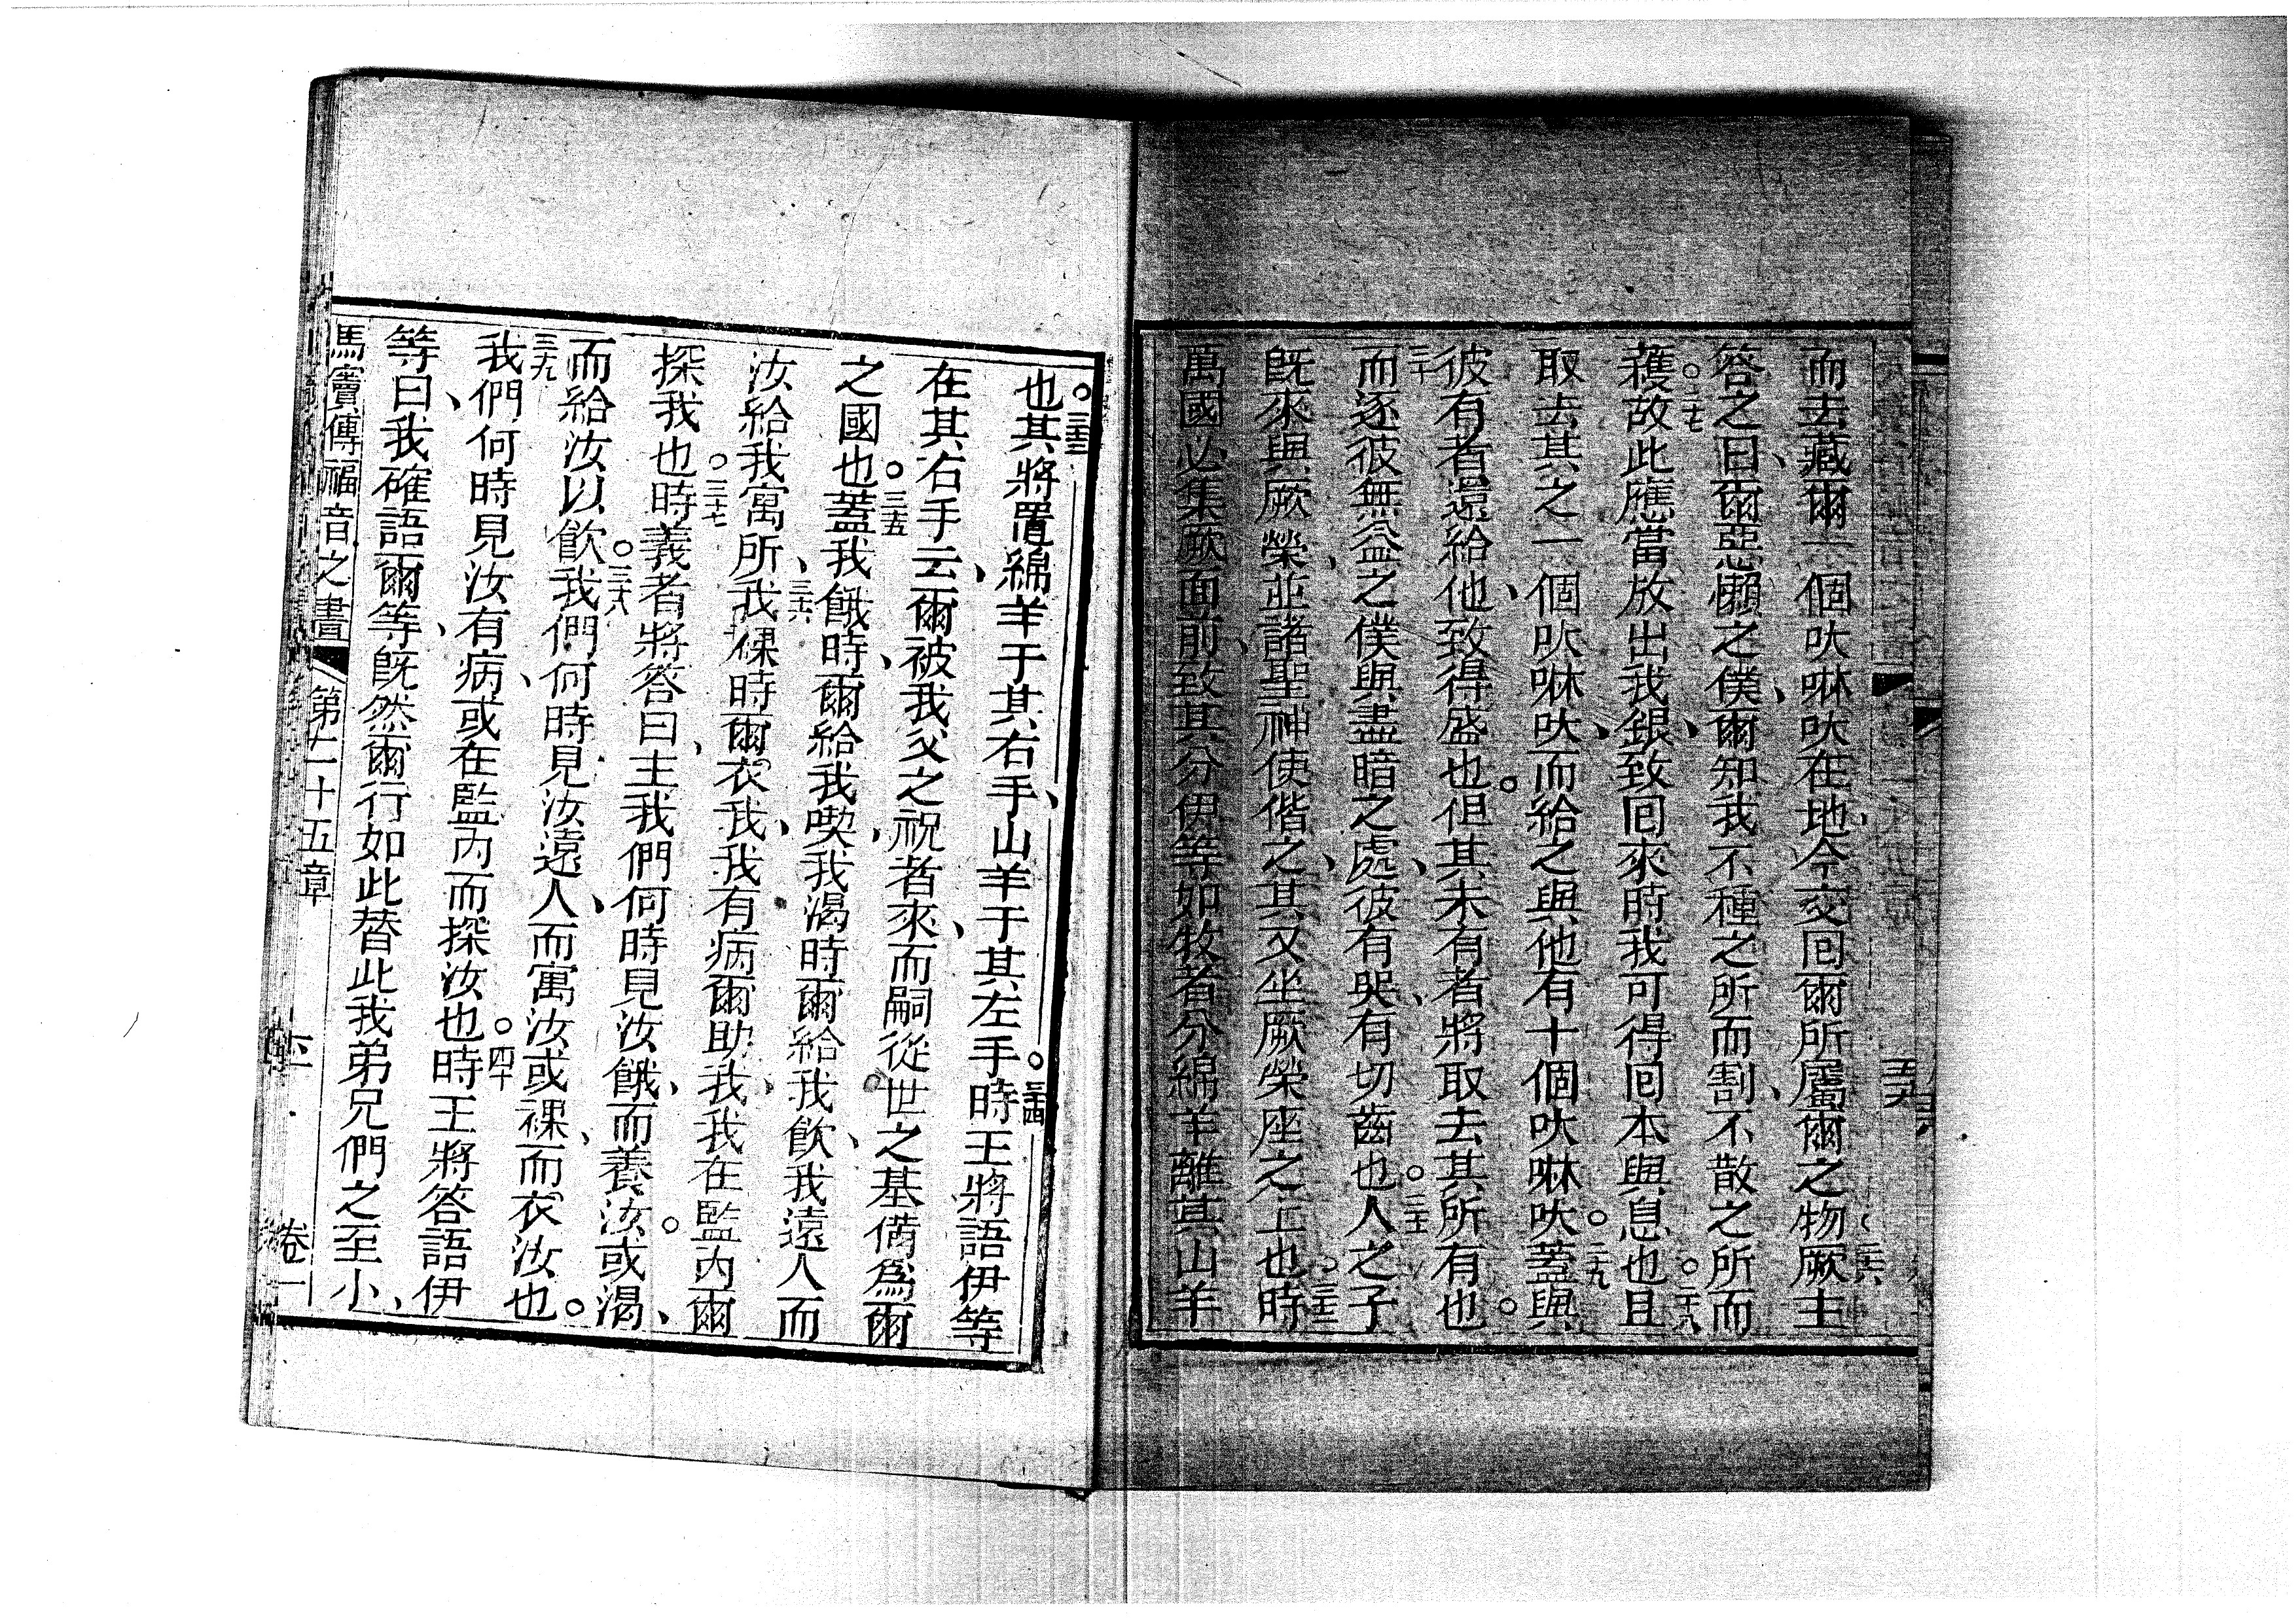 而去藏爾一個吠啉吠在地、今交囘爾所屬爾之物、二六厥主
答之曰、爾惡懶之僕、爾知我不種之所而割、不散之所而
穫。二七故此應當放出我銀、致囘來時我可得囘本與息也。二八且
取去其之一個吠啉吠、而給之與他有十個吠啉吠。二九蓋與
彼有者還給他、致得盛也。但其未有者將取去其所有也。
三十而逐彼無益之僕與盡暗之處、彼有哭、有切齒也。三一人之子
既來與厥榮、並諸聖神使偕之、其又坐厥榮座之上也。三二時
萬國必集厥面前、致其分伊等如牧者分綿羊離其山羊
也。三三其將置綿羊于其右手、山羊于其左手。三四時王將語伊等
在其右手云、爾被我父之祝者來、而嗣從世之基備爲爾
之國也。三五蓋我餓時、爾給我喫、我渴時爾給我飲、我遠人而
汝給我寓所、三六我裸時爾衣我、我有病爾助我、我在監內爾
探我也。三七時義者將答曰、主我們何時見汝餓、而養汝。或渴、
而給汝以飲。三八我們何時見汝遠人、而寓汝或裸、而衣汝也。
三九我們何時見汝有病、或在監內而探汝也。四十時王將答語伊
等曰、我確語爾等、既然爾行如此替此我弟兄們之至小、
馬竇傳福音之書 第二十五章 卷一